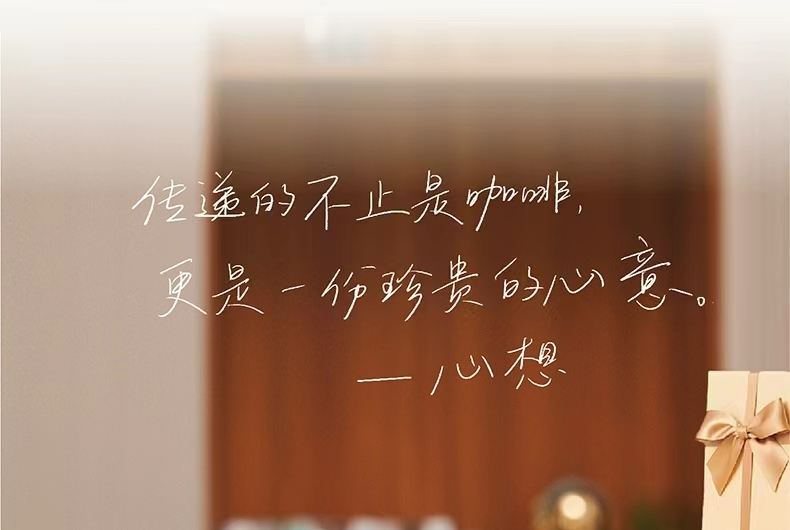 传递的不止是咖啡,
更是一份珍贵的心意。
—心想